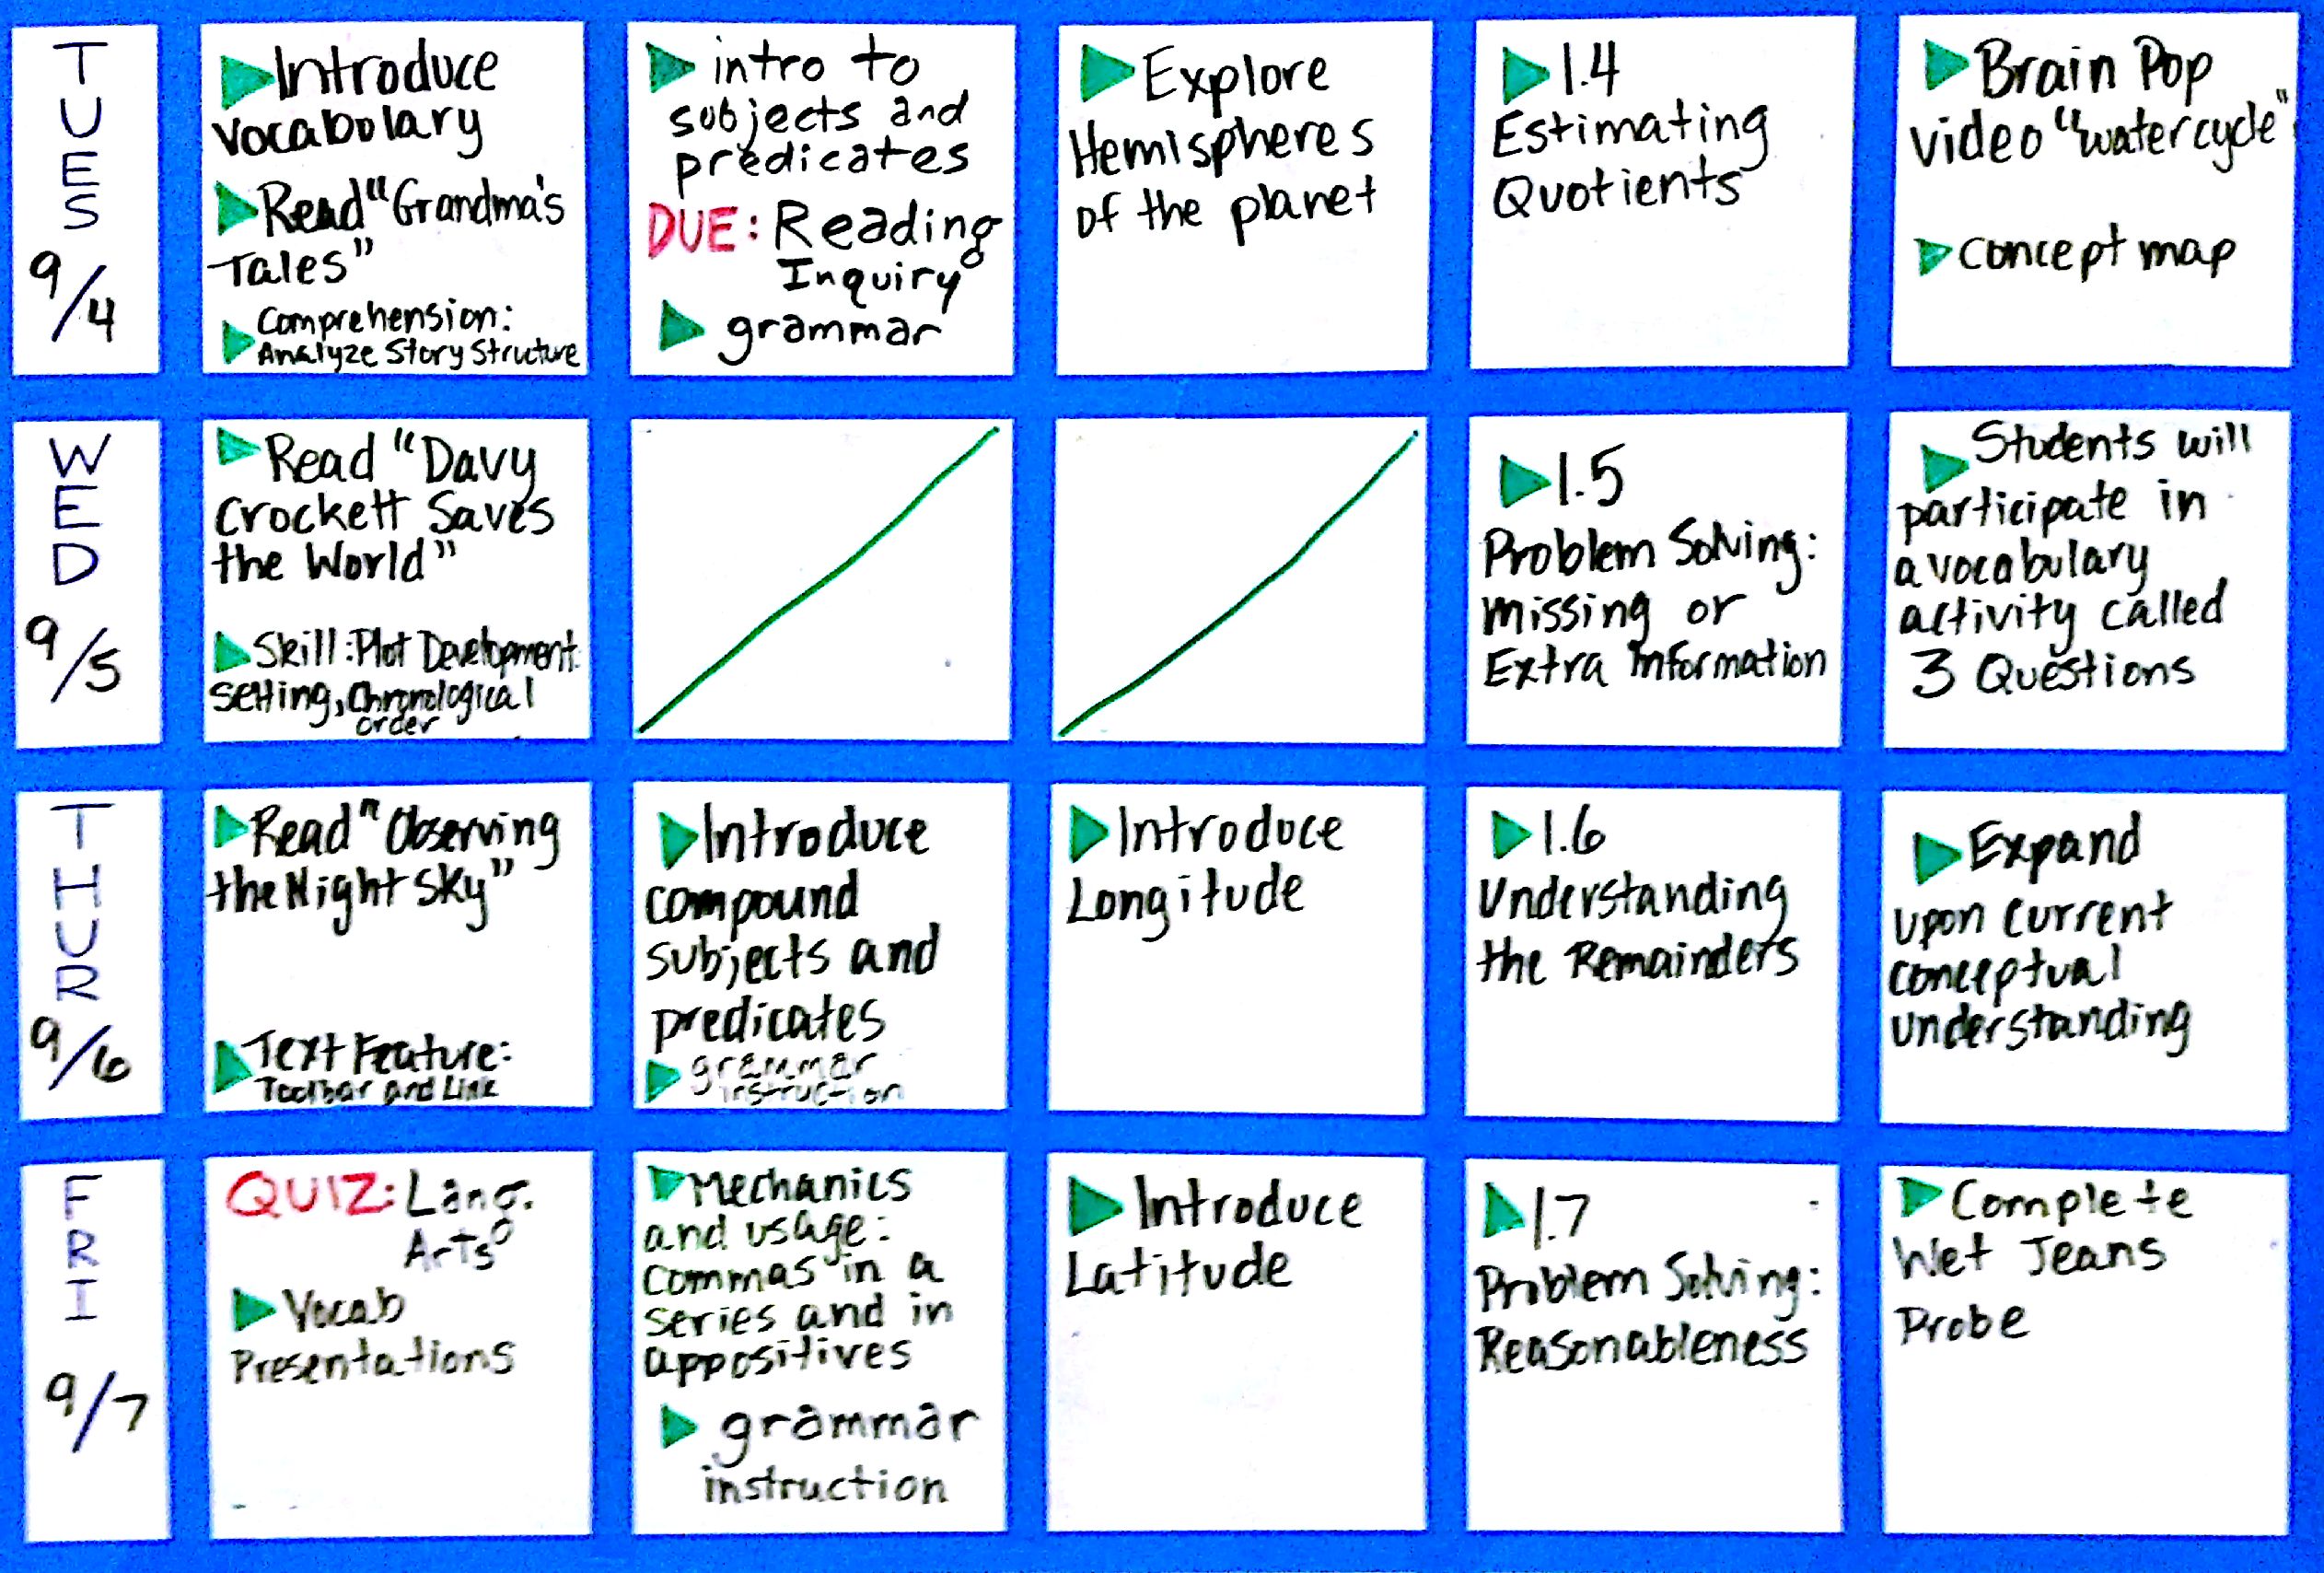 TUES
9/4
Introduce
vocabulary
Read "Grandma's
Tales"
Comprehension:
Analyze Story Structure
intro to
subjects and
predicates
DUE: Reading
Inquiry
grammar
Explore
Hemispheres
of the planet
1.4
Estimating
Quotients
Brain Pop
video "water cycle"
concept map
WED
9/5
Read "Davy
Crockett Saves
the World"
Skill: Plot Development
setting, Chronological
order
1.5
Problem Solving:
missing or
Extra information
Students will
participate in
a vocabulary
activity called
3 Questions
THUR
9/6
Read "Observing
the Night Sky"
Text Feature:
Toolbar and Link
Introduce
compound
subjects and
predicates
grammar
instruction
Introduce
Longitude
1.6
Understanding
the Remainders
Expand
upon current
conceptual
understanding
FRI
9/7
QUIZ: Lang.
Arts
Vocab
Presentations
Mechanics
and usage:
commas in a
series and in
appositives
grammar
instruction
Introduce
Latitude
1.7
Problem Solving:
Reasonableness
Complete
Wet Jeans
Probe